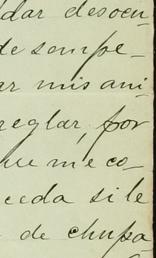 dar desoen-
de sempe-
ar mis ani-
reglar, por
ue me co-
ceda si le
de chupa-